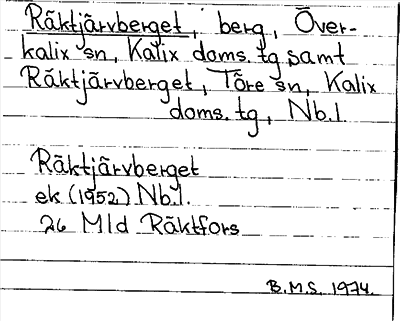 Räktjärvberget, berg, Över-
kalix sn, Kalix doms. tg samt
Räktjärvberget, Töre sn, Kalix
doms. tg, Nb.l.
Räktjärvberget
ek (1952) Nb.l.
26 Mld Räktfors
B.M.S. 1974.